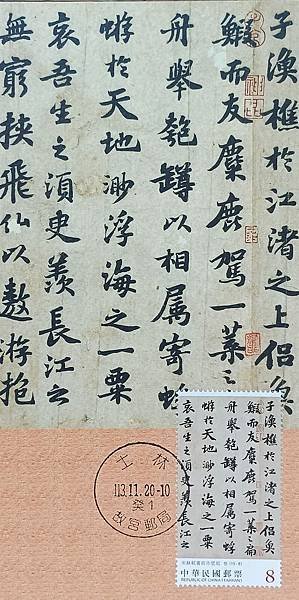 子漁樵於江渚之上侶魚
鰕而友麋鹿駕一葉之
舟舉匏罇以相属寄蜉
蝣於天地渺浮海之一粟
哀吾生之須臾羨長江之
無窮挾飛仙以遨游抱
士林
113.11.20-10
癸1
故宮郵局
子漁樵於江渚之上侶魚
鰕而友麋鹿駕一葉之扁
舟舉匏罇以相属寄蜉
蝣於天地渺浮海之一粟
哀吾生之須臾羨長江之
宋蘇軾書前赤壁賦
中華民國郵票
REPUBLIC OF CHINA (TAIWAN)
8